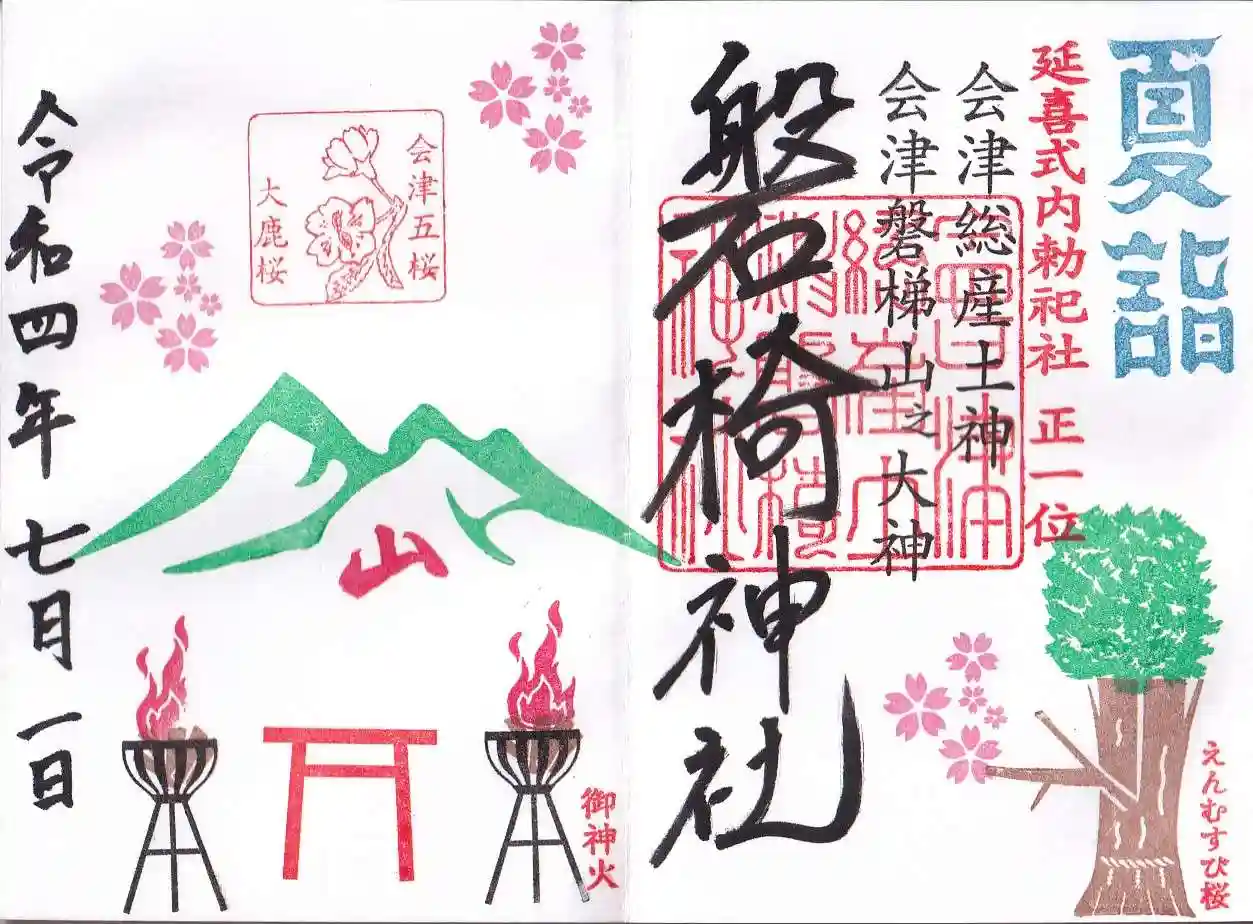 夏詣
延喜式内勅祀社 正一位
会津総産土神
会津磐梯山之大神
磐椅神社
えんむすび桜
会津五桜
大鹿桜
山
御神火
令和四年 七月一日